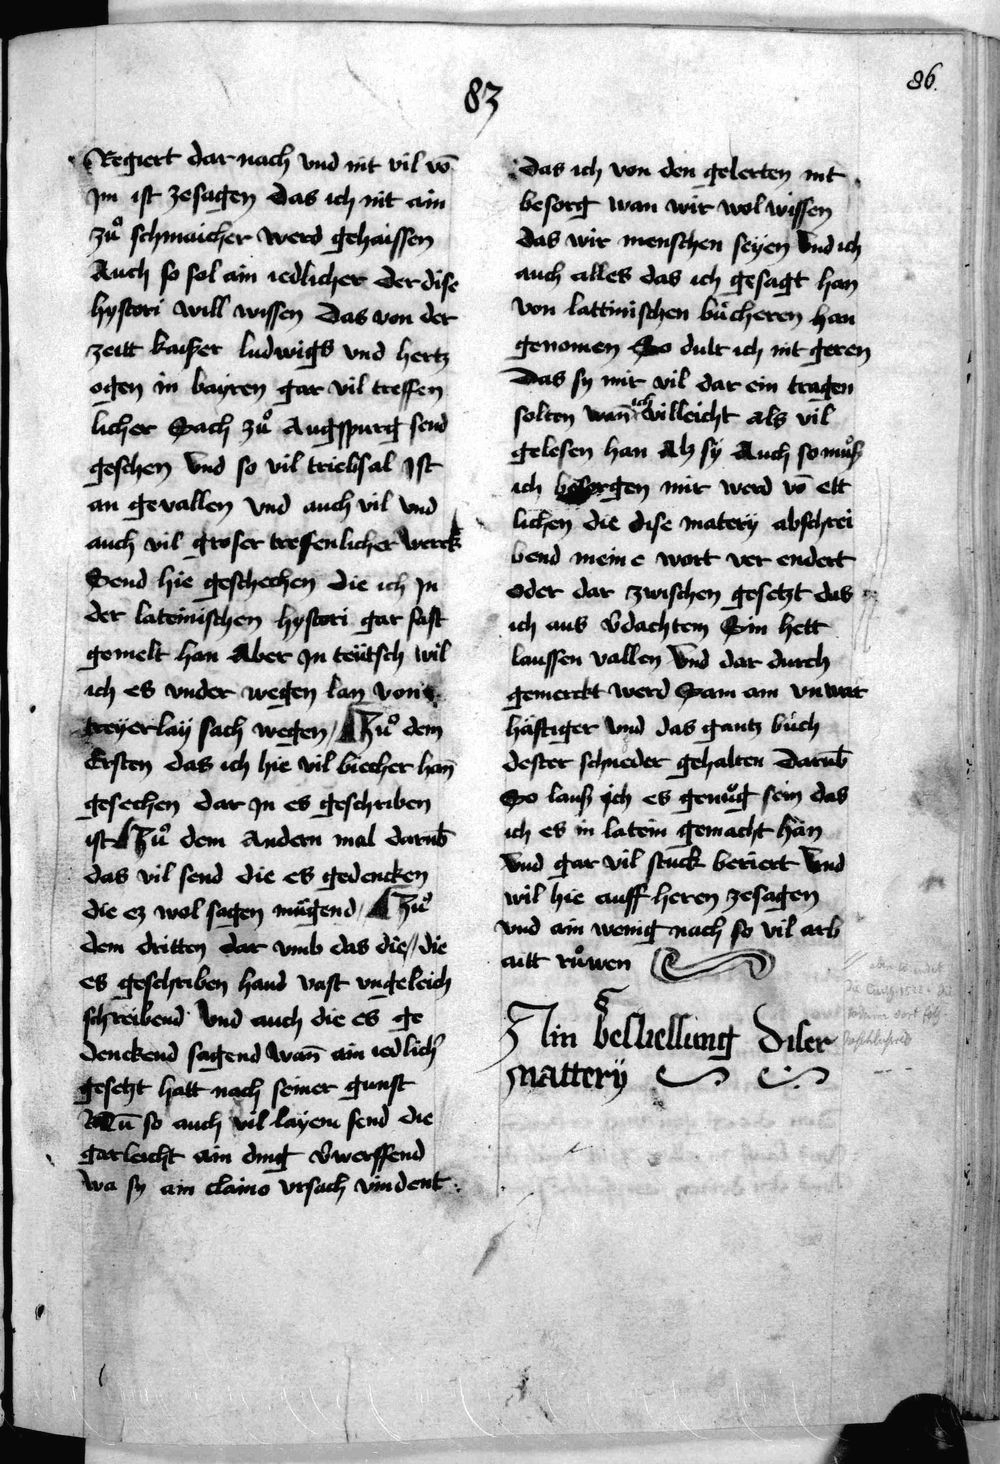 83
86.
Regiert dar nach vnd nit vil vō
Im ist zesagen Das ich nit ain
zuͦ schmaicher werd gehaissen
Auch so sol ain iedlicher der dise
hystori will wissen Das von der
zeitt kaiser ludwigs vnd hertz
ogen in bayren gar vil treffen
licher Sach zuͦ Augspurg send
geschen vnd so vil triebsal Ist
an gevallen vnd auch vil vnd
auch vil groser treffenlicher werck
Send hie geschechen die ich In
der lateinischen hystori gar fast
gemelt han Aber In teütsch wil
ich es vnder wegen lan von
treyerlay sach wegen / Zuͦ dem
Ersten das ich hie vil biecher han
gesechen dar In es geschriben
ist Zuͦ dem Andern mal darūb
das vil send die es gedencken
die ez wol sagen mügend / Zuͦ
dem dritten dar vmb das die // die
es geschriben hand vast vngeleich
schreibend vnd auch die es ge
denckend sagend wan̄ ain iedlich
gesetzt hatt nach seiner gunst
Nū so auch vil layem send die
gar leicht ain ding v̄werffend
wa sy ain claino vrsach vindent
Das ich von den gelerten nit
besorg wan wir wol wissen
das wir menschen seyen vnd ich
auch alles das ich gesagt han
von lattinischen buͤcheren han
genomen So dult ich nit geren
Das sy mir vil dar ein tragen
solten wan̄ ich villeicht als vil
gelesen han Alz sy Auch so muͦß
ich besorgen mir werd vō ett
lichen die dise matery abschrei
bend meine wort ver endert
oder dar zwischen gesetzt das
ich aus v̄dachtem Sin hett
laussen vallen vnd dar durch
gemerckt werd Sam am vnwar
häftiger vnd das gantz buͦch
dester schneder gehalten Darūb
So lauß ich es genuͦg sein das
ich es in latein gemacht hän
vnd gar vil stuck beriert vnd
wil hie auff heren zesagen
vnd ain wenig nach so vil arb
aitt ruͦwen
Ain beschliessung Diser
mattery